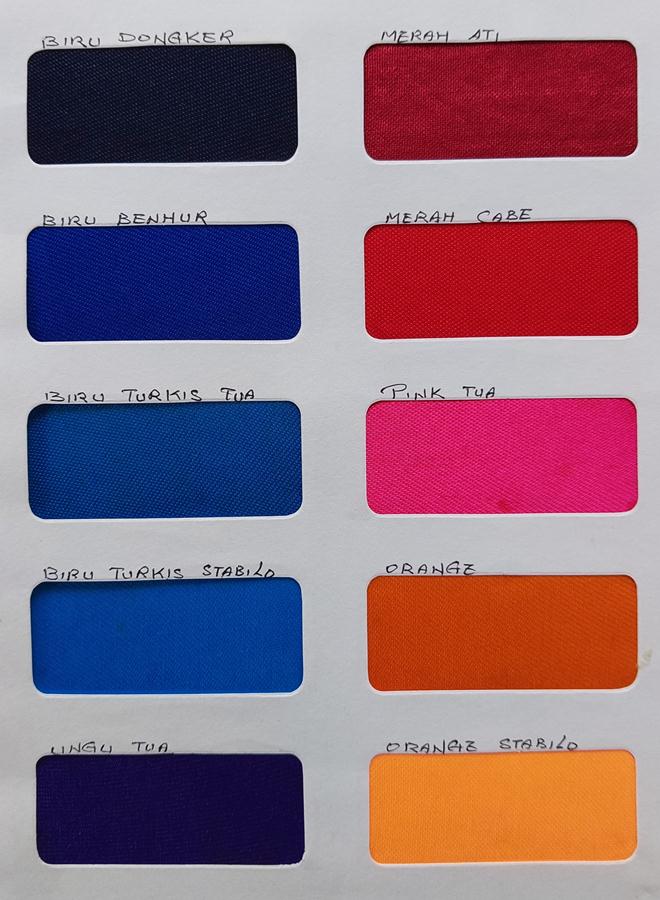 BIRU DONGKER
MERAH ATI
BIRU BENHUR
MERAH CABE
BIRU TURKIS TUA
PINK TUA
BIRU TURKIS STABILO
ORANGE
UNGU TUA
ORANGE STABILO